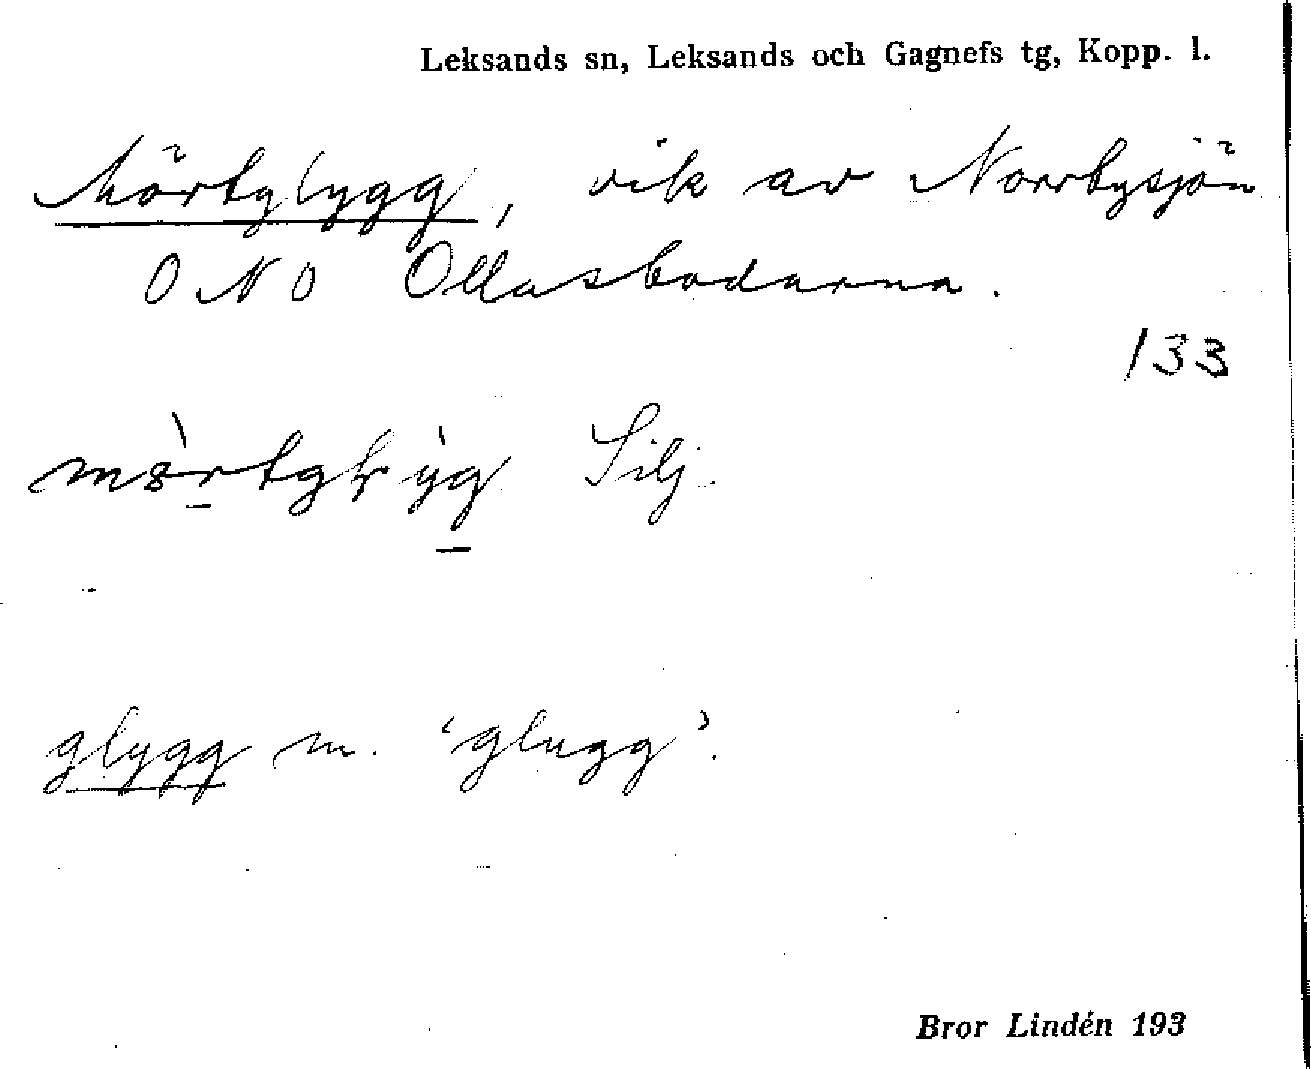 Leksands sn, Leksands och Gagnefs tg, Kopp. l.
Mörtglygg, vik av Norrbysjön
ONO Ollasbodarna.
133
Silj.
glygg m. 'glugg'.
Bror Lindén 193